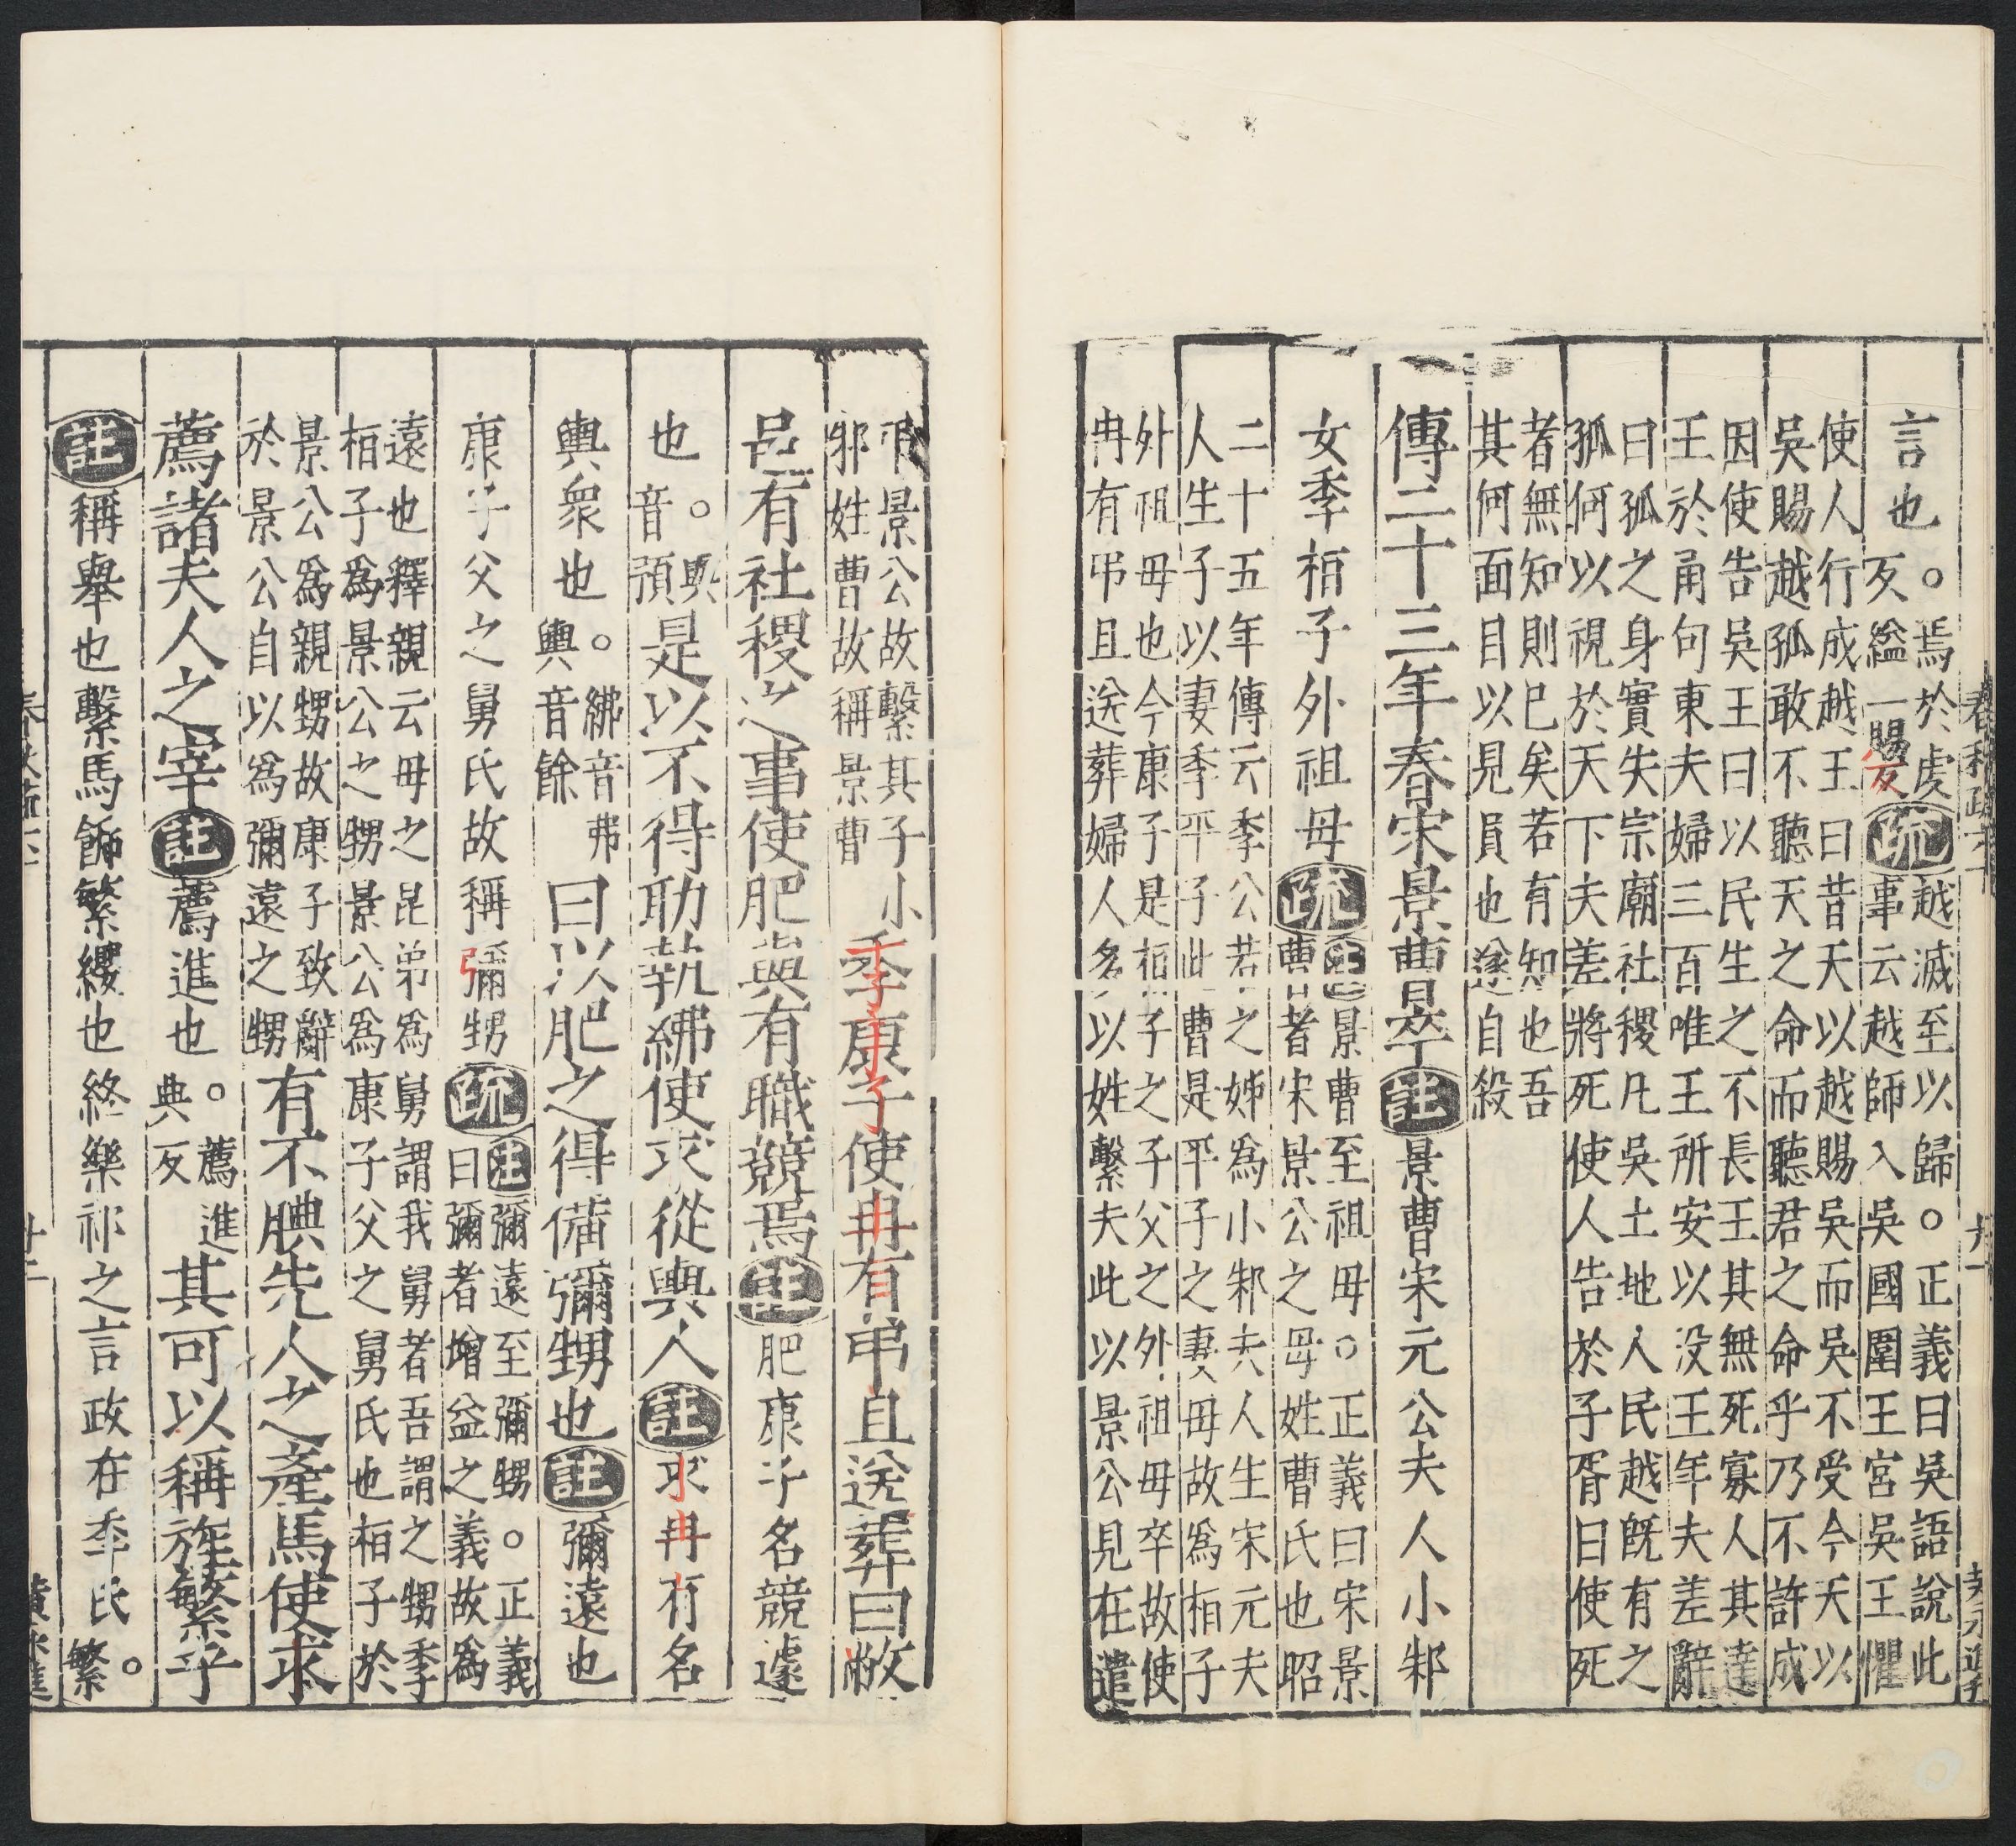 春秋疏六十
言也。焉於虔
反縊一賜反
疏
越滅至以歸。正義曰吳語說此
事云越師入吳國圍王宮吳王懼
使人行成越王曰昔天以越賜吳而吳不受今天以
吳賜越孤敢不聽天之命而聽君之命乎乃不許成
因使告吳王曰以民生之不長王其無死寡人其達
王於甬句東夫婦三百唯王所安以没王年夫差辭
曰孤之身實失宗廟社稷凡吳土地人民越既有之
孤何以視於天下夫差將死使人告於子胥曰使死
者無知則已矣若有知也吾
其何面目以見員也遂自殺
傳二十三年春宋景曹卒註景曹宋元公夫人小邾
女季桓子外祖母疏
注景曹至祖母。正義曰宋景
曹者宋景公之母姓曹氏也昭
二十五年傳云季公若之姊為小邾夫人生宋元夫
人生子以妻季平子此曹是平子之妻母故為桓子
外祖母也今康子是桓子之子父之外祖母卒故使
冉有弔且送葬婦人名以姓繫夫此以景公見在遣
弔景公故繫其子小
邾姓曹故稱景曹
季康子使冉有弔且送葬曰敝
邑有社稷之事使肥與有職競焉註肥康子名競遽
也。與
音預
是以不得助執紼使求從輿人註求冉有名
輿衆也。紼音弗
輿音餘
曰以肥之得備彌甥也註彌遠也
康子父之舅氏故稱彌甥疏
注彌遠至彌甥。正義
曰彌者增益之義故爲
遠也釋親云母之昆弟爲舅謂我舅者吾謂之甥季
桓子爲景公之甥景公爲康子父之舅氏也桓子於
景公爲親甥故康子致辭
於景公自以爲彌遠之甥
有不腆先人之產馬使求
薦諸夫人之宰註薦進也。薦進
典反
其可以稱旌繁乎
註稱舉也繫馬飾繁纓也終樂祁之言政在季氏。繁
廿二